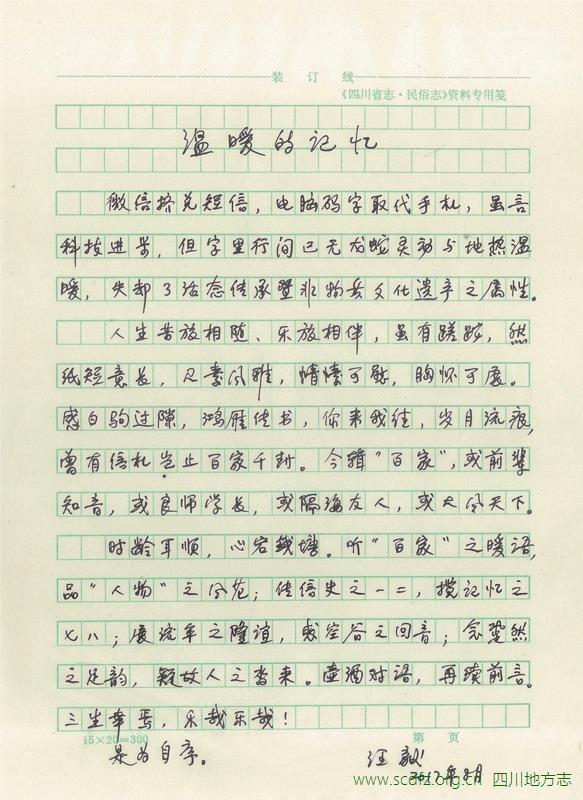 装 订 线
《四川省志·民俗志》资料专用笺
温暖的记忆
微信挤兑短信，电脑码字取代手札，虽言
科技进步，但字里行间已无龙蛇灵动与地热温
暖，失却了活态传承暨非物质文化遗产之属性。
人生苦旅相随、乐旅相伴，虽有蹉跎，然
纸短意长，尺素风雅，情愫可慰，胸怀可展。
感白驹过隙，鸿雁传书，你来我往，岁月流痕，
曾有信札岂止百家千封。今辑"百家"，或前辈
知音，或良师学长，或隔海友人，或大风天下。
时龄耳顺，心宕钱塘。听"百家"之暖语，
品"人物"之风范；传信史之一二，揽记忆之
七八；展流年之隆谊，感空谷之回音；念跫然
之足韵，疑故人之沓来。壶酒对语，再续前言。
三生幸焉，乐哉乐哉！
15×20=300
第 页
是为自序。
汪毅
2017年8月
www.scdfz.org.cn 四川地方志